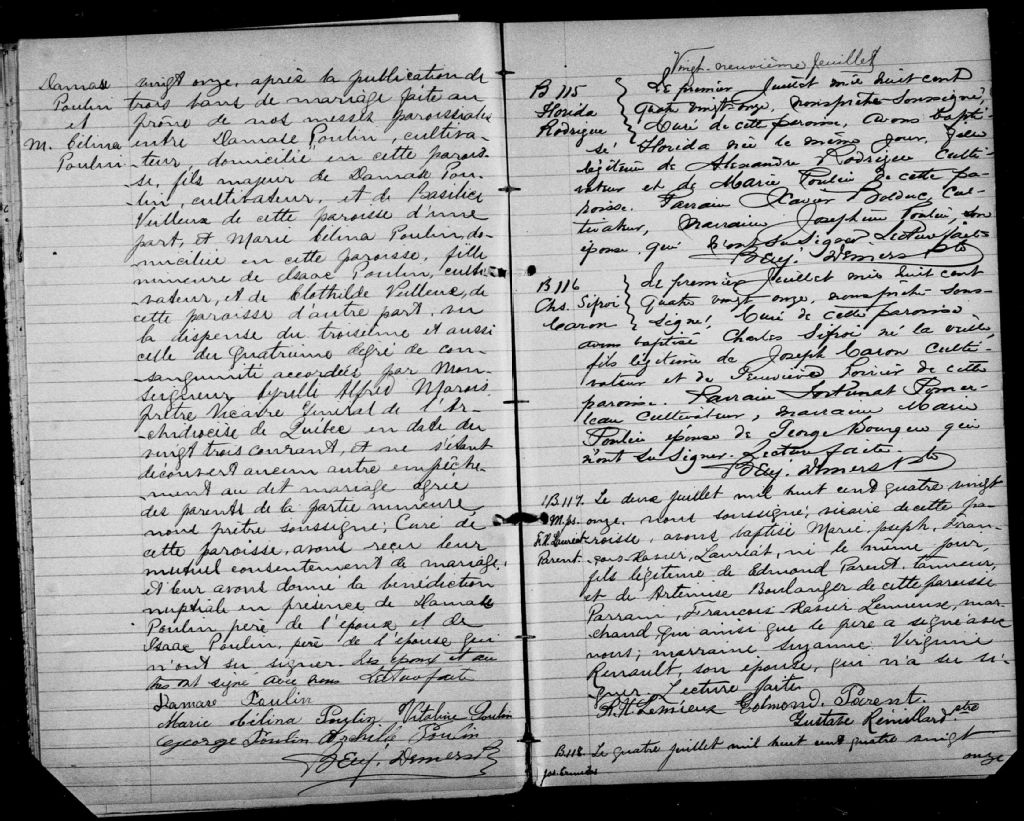 Damase
Poulin
et
M. Célina
Poulin
vingt onze, après la publication de
trois bans de mariage faite au
prône de nos messes paroissiales
entre Damase Poulin, cultiva-
teur, domicilié en cette parois-
se, fils majeur de Damase Pou-
lin, cultivateur, et de Basilice
Veilleux de cette paroisse d'une
part, et Marie Célina Poulin, do-
miciliée en cette paroisse, fille
mineure de Isaac Poulin, culti-
vateur, et de Clothilde Veilleux, de
cette paroisse d'autre part, vu
la dispense du troisième et aussi
celle du quatrième degré de con-
sanguinité accordée par Mon-
seigneur Cyrille Alfred Marois
prêtre Vicaire Général de l'Ar-
chidiocèse de Québec en date du
vingt trois courant, et ne s'étant
découvert aucun autre empêche-
ment au dit mariage agrée
des parents de la partie mineure
nous prêtre soussigné, Curé de
cette paroisse, avons reçu leur
mutuel consentement de mariage,
et leur avons donné la bénédiction
nuptiale en présence de Damase
Poulin père de l'époux et de
Isaac Poulin, père de l'épouse qui
n'ont su signer. Les époux et au
tres ont signé avec nous Lecture faite
Damase Poulin
Marie Célina Poulin Vitaline Poulin
George Poulin Archile Poulin
Benj. Demers Ptre
Vingt-neuvième feuillet
B 115
Florida
Rodrigue
Le premier Juillet mil huit cent
quatre vingt onze, nous prêtre soussigné,
Curé de cette paroisse, avons bapti-
sé Florida née le même jour, fille
légitime de Alexandre Rodrigue culti-
vateur et de Marie Poulin de cette pa-
roisse. Parrain Xavier Bolduc, cul-
tivateur, marraine Josephine Poulin, son
épouse qui n'ont su signer. Lecture faite
Benj. Demers Ptre
B 116
Chs. Sifroi
Caron
Le premier Juillet mil huit cent
quatre vingt onze, nous prêtre sous-
signé, Curé de cette paroisse
avons baptisé Charles Sifroi né la veille,
fils légitime de Joseph Caron culti-
vateur et de Geneviève Poirier de cette
paroisse. Parrain Fortunat Pomer-
leau cultivateur, marraine Marie
Poulin épouse de George Bourque qui
n'ont su signer. Lecture faite.
Benj. Demers Ptre
B 117.
M. Js.
F. X. Lauréat
Parent.
Le deux juillet mil huit cent quatre vingt
onze, nous soussigné, vicaire de cette pa-
roisse, avons baptisé Marie, Joseph, Fran-
çois-Xavier, Lauréat, né le même jour,
fils légitime de Edmond Parent, tanneur,
et de Artémise Boulanger de cette paroisse
Parrain, François-Xavier Lemieux, mar-
chand qui ainsi que le père a signé avec
nous; marraine Suzanne Virginie
Renault, son épouse, qui n'a su si-
gner. Lecture faite
F. X. Lemieux Edmond. Parent.
Gustave Rémillard. ptre
B 118.
Le quatre juillet mil huit cent quatre vingt
onze